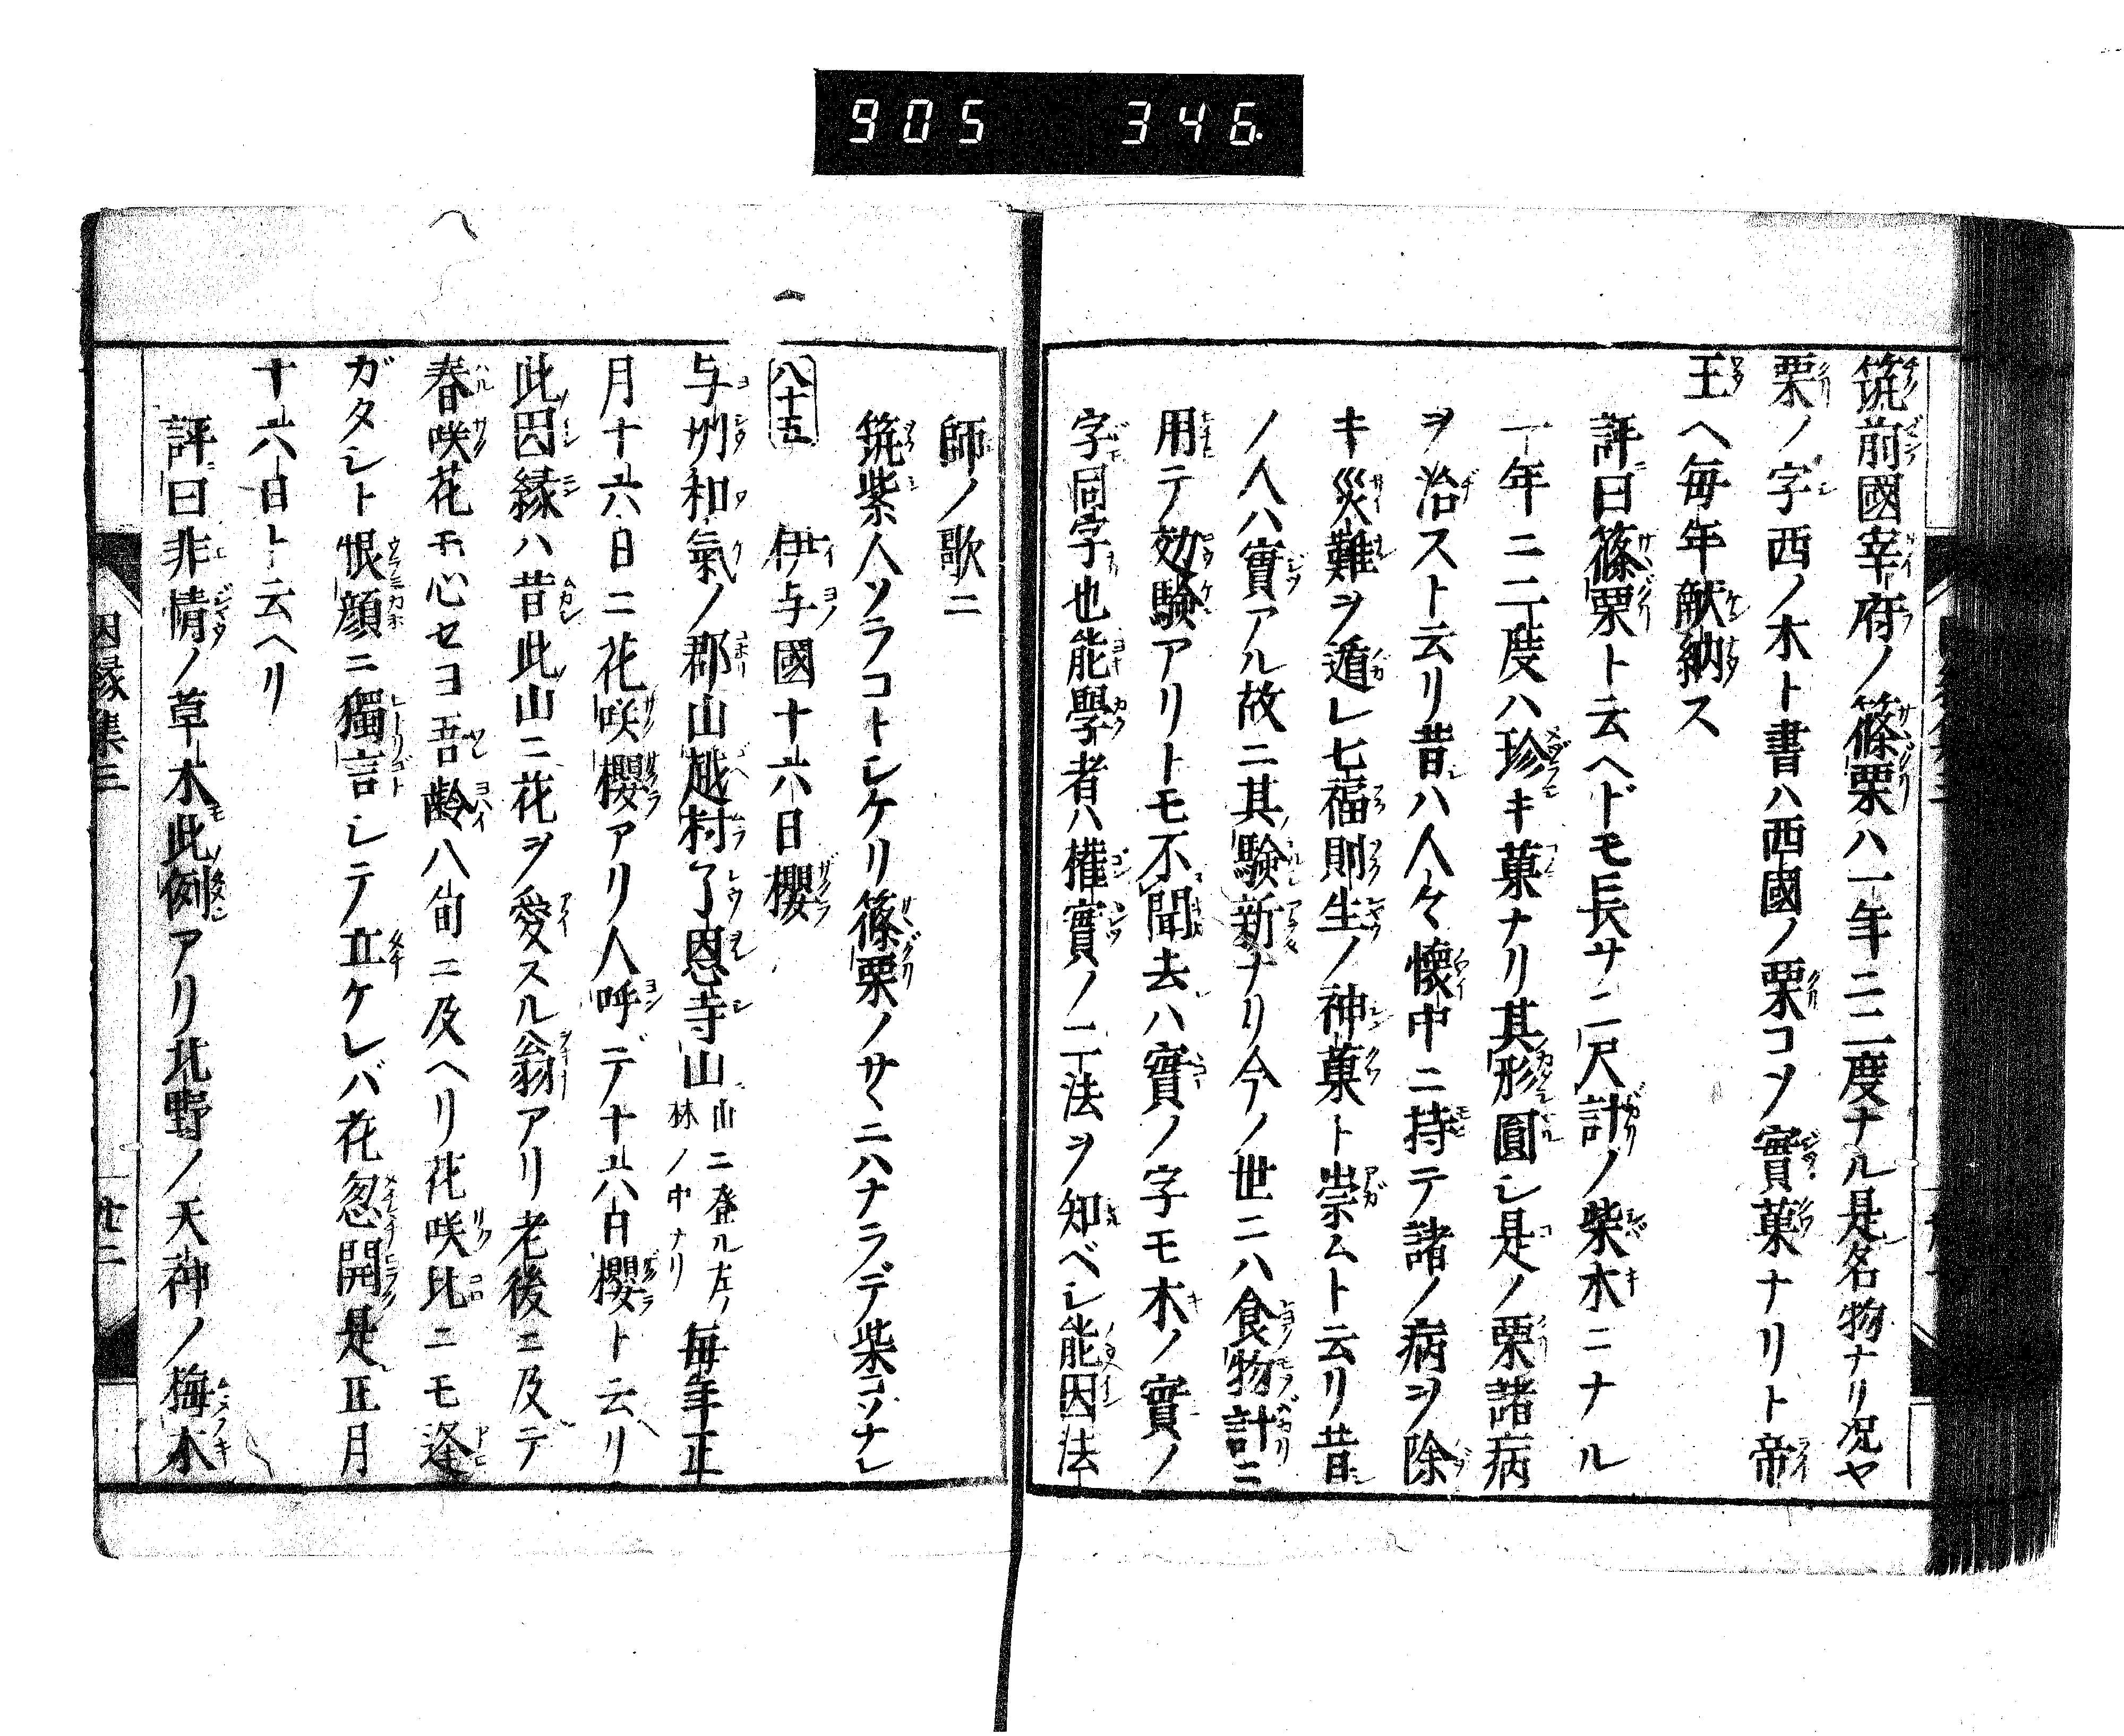 905 346
筑前國宰府ノ篠栗ハ一年ニ二度ナル是名物ナリ况ヤ
栗ノ字西ノ木ト書ハ西國ノ栗コソ實菓ナリト帝
王ヘ毎年献納ス
評曰篠栗ト云ヘドモ長サ二尺計ノ柴木ニナル
一年ニ二度ハ珍キ菓ナリ其形圓シ是ノ栗諸病
ヲ治スト云リ昔ハ人々懐中ニ持テ諸ノ病ヲ除
キ災難ヲ遁レ七福則生ノ神菓ト崇ムト云リ昔
ノ人ハ實アル故ニ其験新ナリ今ノ世ニハ食物計ニ
用テ効験アリトモ不聞去ハ實ノ字モ木ノ實ノ
字同字也能學者ハ權實ノ二法ヲ知ベシ能因法
師ノ歌ニ
筑紫人ソラコトシケリ篠栗ノサヽニハナラデ柴コソナレ
八十五 伊与國十六日櫻
与州和氣ノ郡山越村了恩寺山 山ニ登ル左ノ林ノ中ナリ 毎年正
月十六日ニ花咲櫻アリ人呼デ十六日櫻ト云リ
此因縁ハ昔此山ニ花ヲ愛スル翁アリ老後ニ及デ
春咲花モ心セヨ吾齢八旬ニ及ヘリ花咲比ニモ逢
ガタシト恨顔ニ獨言シテ立ケレバ花忽開是正月
十六日ト云ヘリ
評曰非情ノ草木此例アリ北野ノ天神ノ梅木
因縁集三 廿二